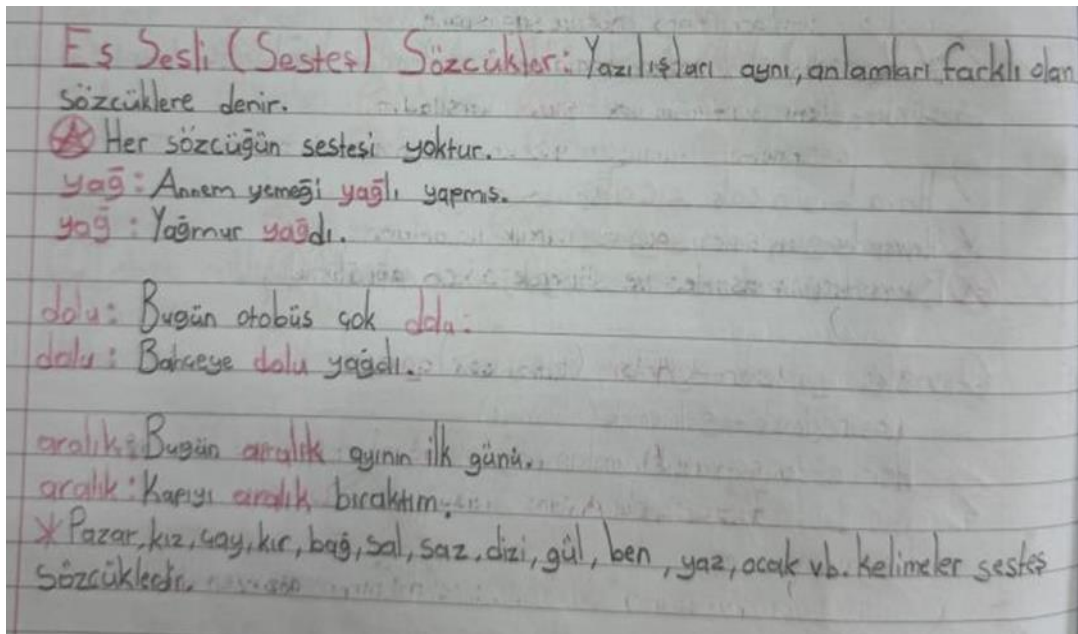 Eş Sesli (Sesteş) Sözcükler: Yazılışları aynı, anlamları farklı olan
sözcüklere denir.
Her sözcüğün sesteşi yoktur.
yağ: Annem yemeği yağlı yapmış.
yağ: Yağmur yağdı.
dolu: Bugün otobüs çok dolu.
dolu: Bahçeye dolu yağdı.
aralık: Bugün aralık ayının ilk günü.
aralık: Kapıyı aralık bıraktım.
* Pazar, kız, çay, kır, bağ, sal, saz, dizi, gül, ben, yaz, ocak vb. kelimeler sesteş
sözcüklerdir.